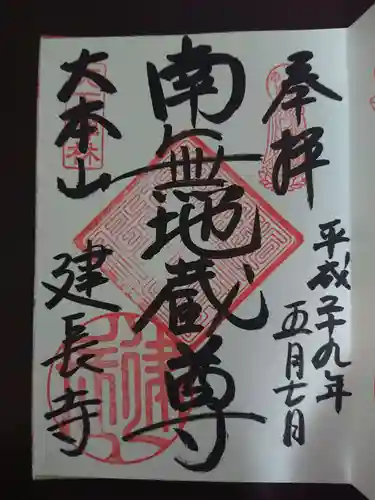 奉拝
平成二十九年
五月七日
南無地蔵尊
大本山
建長寺